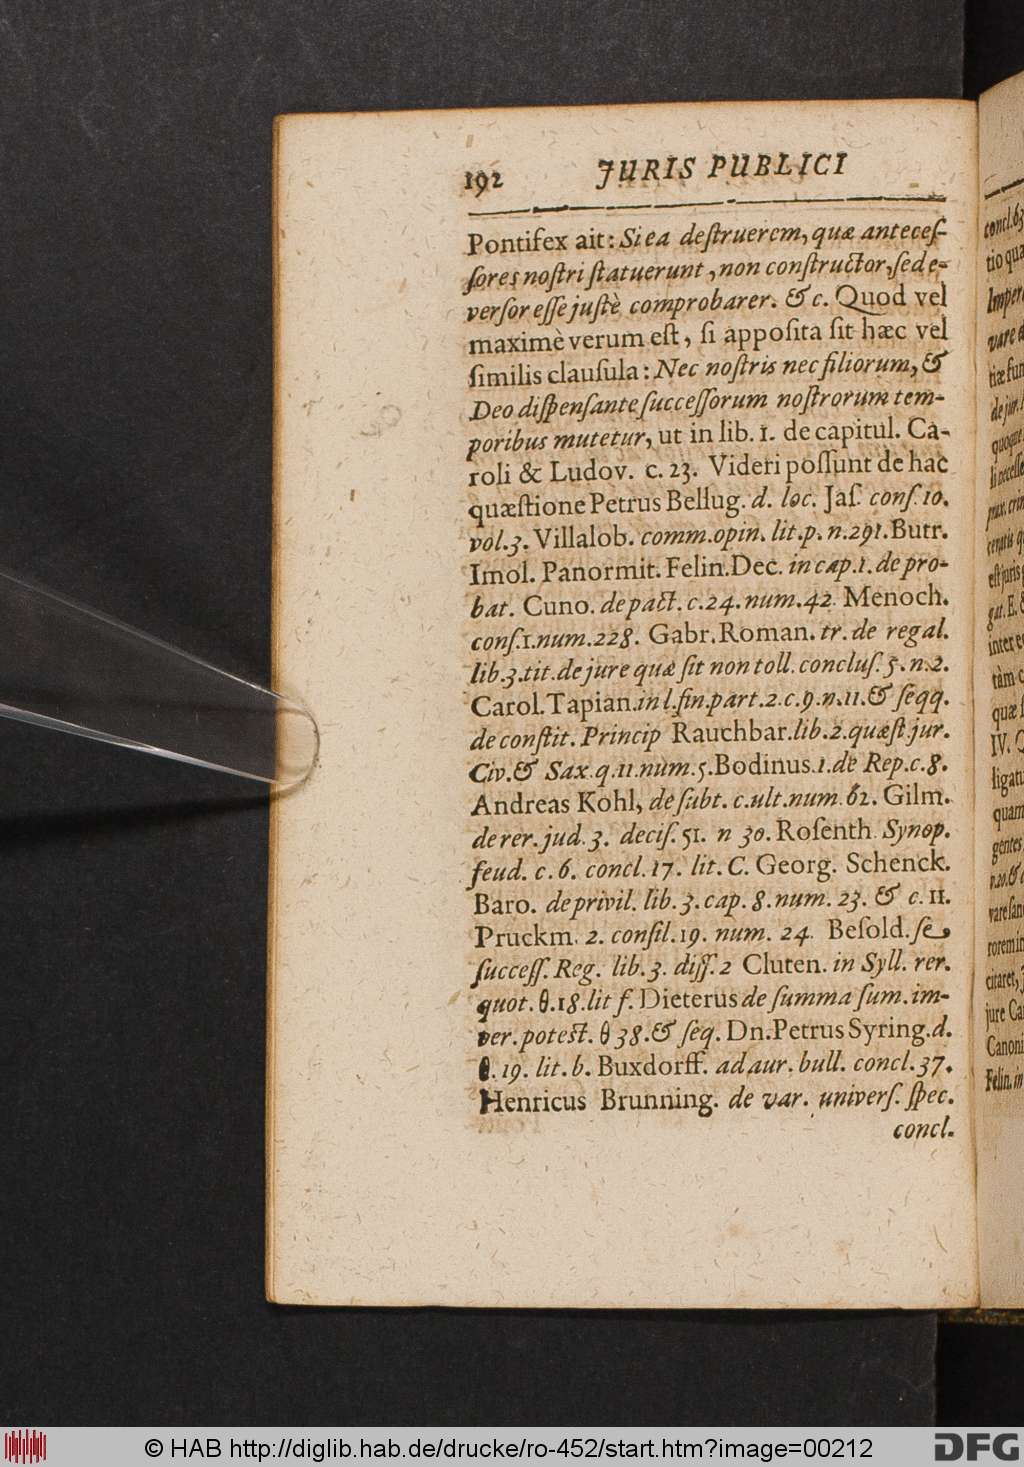 192 JURIS PUBLICI
Pontifex ait: Si ea destruerem, quæ anteces-
sores nostri statuerunt, non constructor, sed e-
versor esse justè comprobarer. & c. Quod vel
maximè verum est, si apposita sit hæc vel
similis clausula: Nec nostris nec filiorum, &
Deo dispensante successorum nostrorum tem-
poribus mutetur, ut in lib. 1. de capitul. Ca-
roli & Ludov. c. 23. Videri possunt de hac
quæstione Petrus Bellug. d. loc. Jas. cons. 10.
vol. 3. Villalob. comm. opin. lit. p. n. 291. Butr.
Imol. Panormit. Felin. Dec. in cap. 1. de pro-
bat. Cuno. de pact. c. 24. num. 42. Menoch.
cons. 1. num. 228. Gabr. Roman. tr. de regal.
lib. 3. tit. de jure quæ sit non toll. conclus. 5. n. 2.
Carol. Tapian. in l. fin. part. 2. c. 9. n. 11. & seqq.
de constit. Princip Rauchbar. lib. 2. quæst jur.
Civ. & Sax. q. 11. num. 5. Bodinus 1. de Rep. c. 8.
Andreas Kohl, de subt. c. ult. num. 62. Gilm.
de rer. jud. 3. decis. 51. n 30. Rosenth. Synop.
feud. c. 6. concl. 17. lit. C. Georg. Schenck.
Baro. de privil. lib. 3. cap. 8. num. 23. & c. 11.
Pruckm. 2. consil. 19. num. 24. Besold. se
success. Reg. lib. 3. diss. 2 Cluten. in Syll. rer.
quot. θ. 18. lit f. Dieterus de summa sum. im-
per. potest. θ 38. & seq. Dn. Petrus Syring. d.
θ. 19. lit. b. Buxdorff. ad aur. bull. concl. 37.
Henricus Brunning. de var. univers. spec.
concl.
concl. 63
tio qua
Imper
vare
tiæ fun
de jur.
quoque
li necesse
prax. crim
ceratis q
est juris
gat. E. &
inter e
tàm c
quæ s
IV. Q
ligatu
quam
gentes
n. 20. &
vare san
rorem im
citaret,
jure Ca
Canoni
Felin. in
© HAB http://diglib.hab.de/drucke/ro-452/start.htm?image=00212
DFG